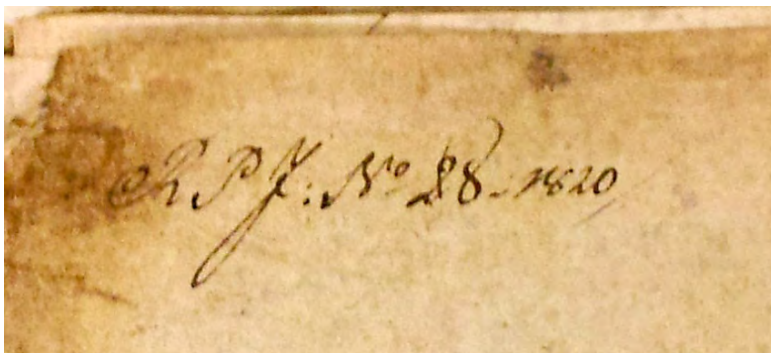 R P J: No 28-1820